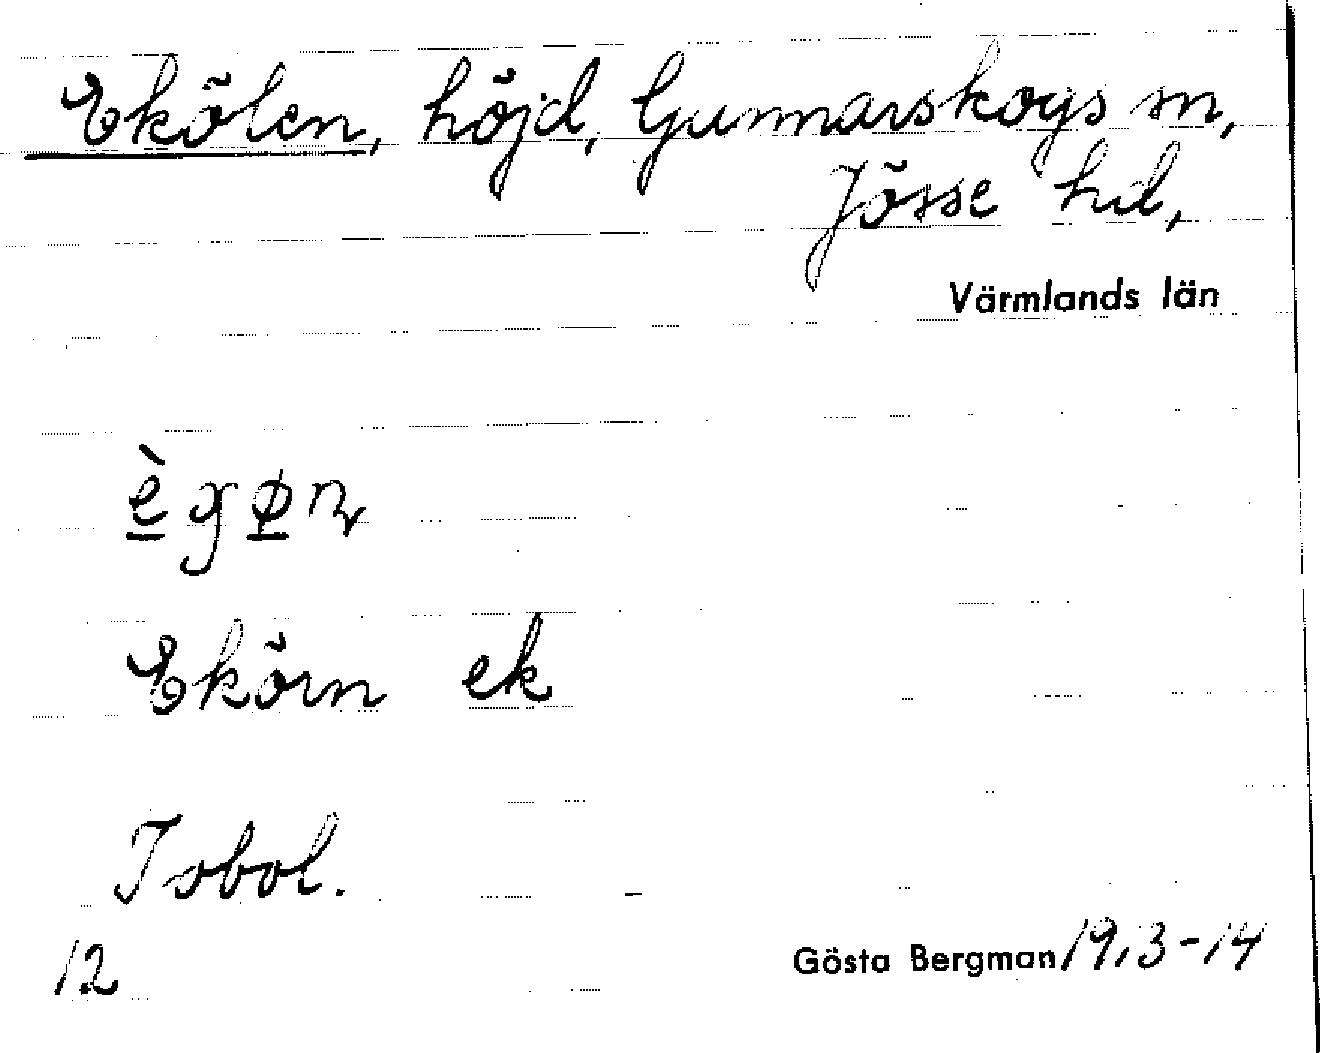 Ekölen, höjd, Gunnarskogs sn,
Jösse hd,
Värmlands län
Ekörn ek
Isbol.
12
Gösta Bergman 1913-14